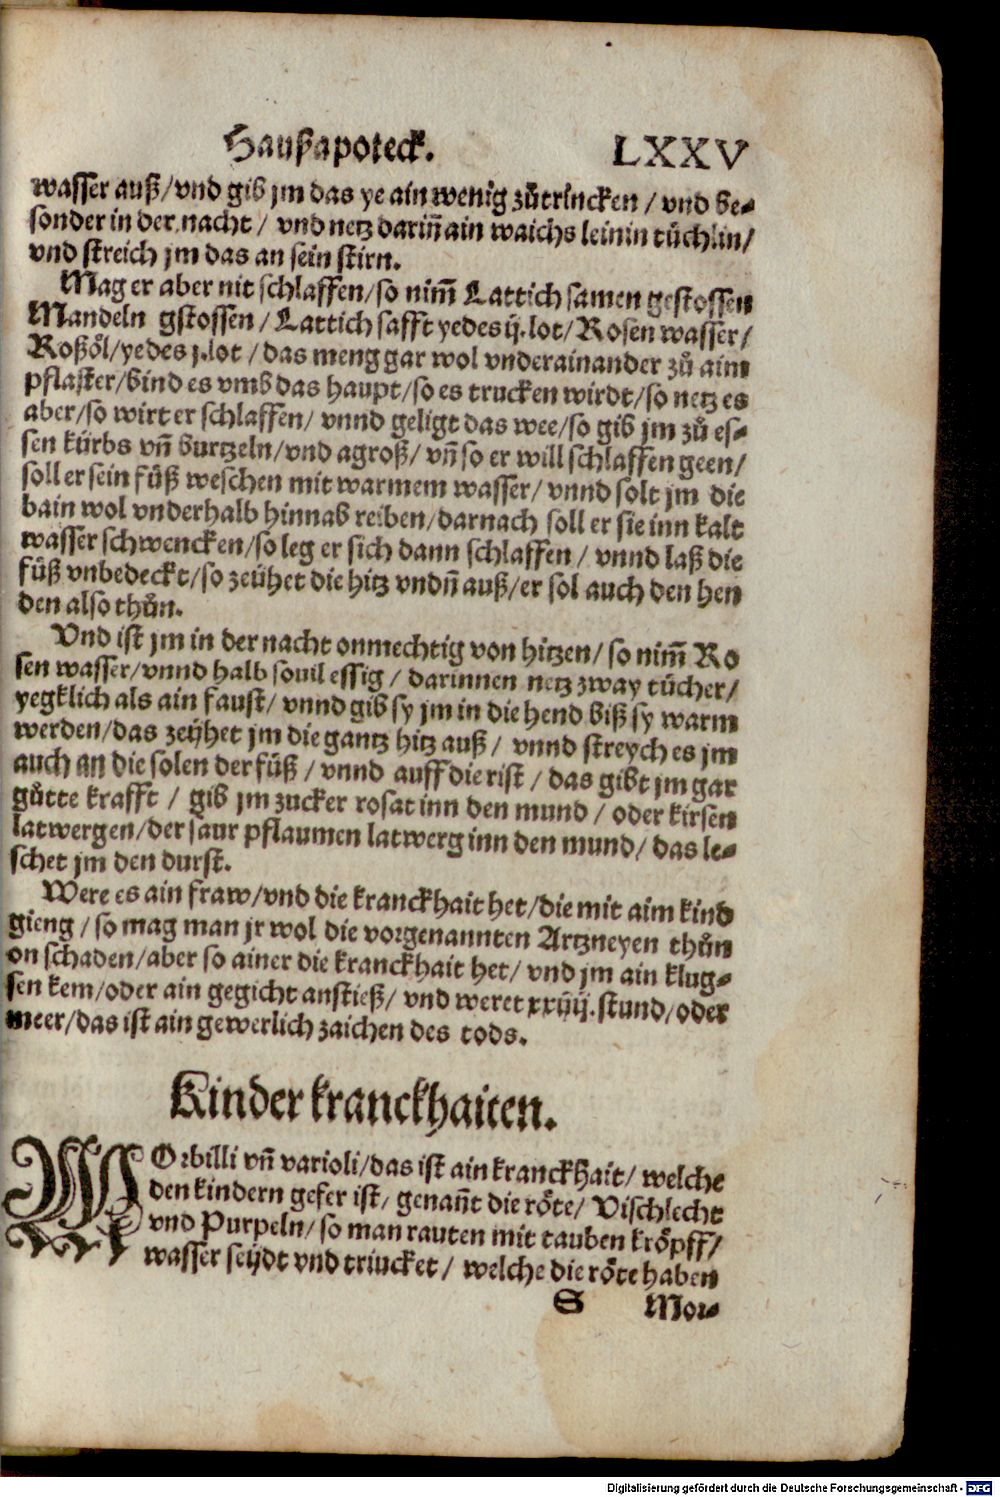 Haußapoteck. LXXV
wasser auß/vnd gib jm das ye ain wenig zůtrincken / vnd be-
sonder in der nacht / vnd netz dariñ ain waichs leinin tüchlin/
vnd streich jm das an sein stirn.
Mag er aber nit schlaffen/so nim̃ Lattich samen gestossen
Mandeln gstossen / Lattich safft yedes ij. lot/ Rosen wasser/
Roßöl/yedes j.lot / das meng gar wol vnderainander zů aim
pflaster/bind es vmb das haupt/so es trucken wirdt/so netz es
aber/so wirt er schlaffen/ vnnd geligt das wee/so gib jm zů es-
sen kürbs vñ burtzeln/vnd agroß/ vñ so er will schlaffen geen/
soll er sein füß weschen mit warmem wasser/ vnnd solt jm die
bain wol vnderhalb hinnab reiben/darnach soll er sie inn kalt
wasser schwencken/so leg er sich dann schlaffen / vnnd laß die
füß vnbedeckt/so zeühet die hitz vndñ auß/er sol auch den hen
den also thůn.
Vnd ist jm in der nacht onmechtig von hitzen/ so nim̃ Ro
sen wasser/vnnd halb souil essig / darinnen netz zway tücher/
yegklich als ain faust/ vnnd gib sy jm in die hend biß sy warm
werden/das zeühet jm die gantz hitz auß / vnnd streych es jm
auch an die solen der füß / vnnd auff die rist / das gibt jm gar
gůtte krafft / gib jm zucker rosat inn den mund / oder kirsen
latwergen/der saur pflaumen latwerg inn den mund/ das le-
schet jm den durst.
Were es ain fraw/vnd die kranckhait het/die mit aim kind
gieng / so mag man jr wol die vorgenannten Artzneyen thůn
on schaden/aber so ainer die kranckhait het/ vnd jm ain klug-
sen kem/oder ain gegicht anstieß/ vnd weret xxiiij. stund/oder
meer/das ist ain gewerlich zaichen des tods.
Kinder kranckhaiten.
MOrbilli vñ varioli/das ist ain kranckhait/ welche
den kindern gefer ist/ genañt die röte/ Vischlecht
vnd Purpeln/ so man rauten mit tauben kröpff/
wasser seydt vnd triucket / welche die röte haben
S Mor-
Digitalisierung gefördert durch die Deutsche Forschungsgemeinschaft - DFG